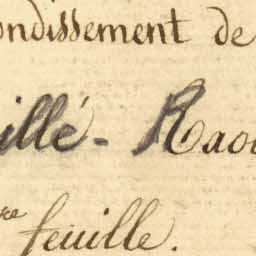 ondissement de
illé - Raou
re feuille.